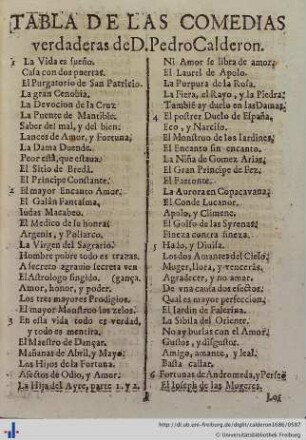 TABLA DE LAS COMEDIAS
verdaderas de D. Pedro Calderon.
1 La Vida es sueño.
Casa con dos puertas.
El Purgatorio de San Patricio.
La gran Cenobia.
La Devocion de la Cruz.
La Puente de Mantible.
Saber del mal, y del bien.
Lances de Amor, y Fortuna.
La Dama Duende.
Peor está, que estaua.
El Sitio de Bredà.
El Principe Constante.
2 El mayor Encanto Amor.
El Galán Fantasma.
Iudas Macabeo.
El Medico de su honra.
Argenis, y Poliarco.
La Virgen del Sagrario.
Hombre pobre todo es trazas.
A secreto agrauio secreta ven
El Astrologo fingido. (gança.
Amor, honor, y poder.
Los tres mayores Prodigios.
El mayor Monstruo los zelos.
3 En esta vida todo es verdad,
y todo es mentira,
El Maestro de Dançar.
Mañanas de Abril, y Mayo.
Los Hijos de la Fortuna.
Afectos de Odio, y Amor.
La Hija del Ayre, parte 1. y 2.
Ni Amor se libra de amor.
El Laurel de Apolo.
La Purpura de la Rosa.
La Fiera, el Rayo, y la Piedra;
Tambiē ay duelo en las Damas
4 El postrer Duelo de España,
Eco, y Narciso.
El Monstruo de los Jardines.
El Encanto sin encanto.
La Niña de Gomez Arias.
El Gran Principe de Fez.
El Faetonte.
La Aurora en Copacavana.
El Conde Lucanor.
Apolo, y Climene.
El Golfo de las Syrenas.
Fineza contra fineza.
5 Hado, y Diuisa.
Los dos Amantes del Cielo.
Muger, llora, y vencerás.
Agradecer, y no amar.
De vna causa dos efectos.
Qual es mayor perfeccion.
El Jardin de Falerina.
La Sibila del Oriente.
No ay burlas con el Amor.
Gustos, y disgustos.
Amigo, amante, y leal.
Basta callar.
6 Fortunas de Andromeda, y Perseo
El Joseph de las Mugeres.
Los
http://dl.ub.uni-freiburg.de/diglit/calderon1698/0597
© Universitätsbibliothek Freiburg